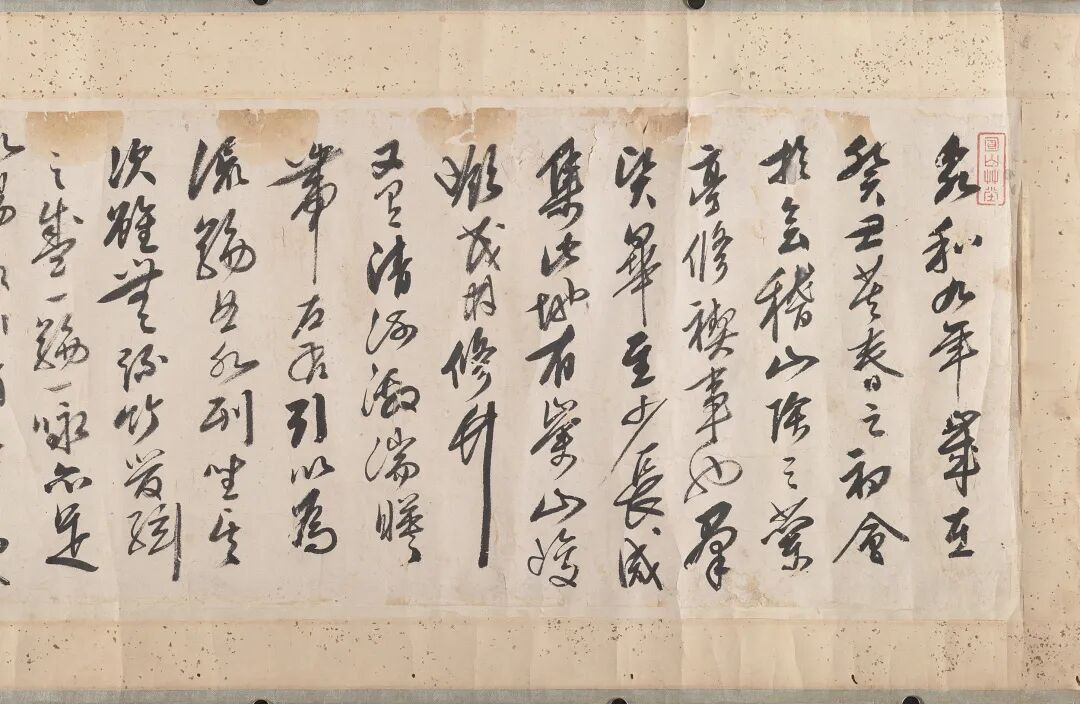 永和九年歲在
癸丑暮春之初會
於會稽山陰之蘭
亭修禊事也群
賢畢至少長咸
集此地有崇山峻
嶺茂林修竹
又有清流激湍映
帶左右引以為
流觴曲水列坐其
次雖無絲竹管絃
之盛一觴一詠亦足